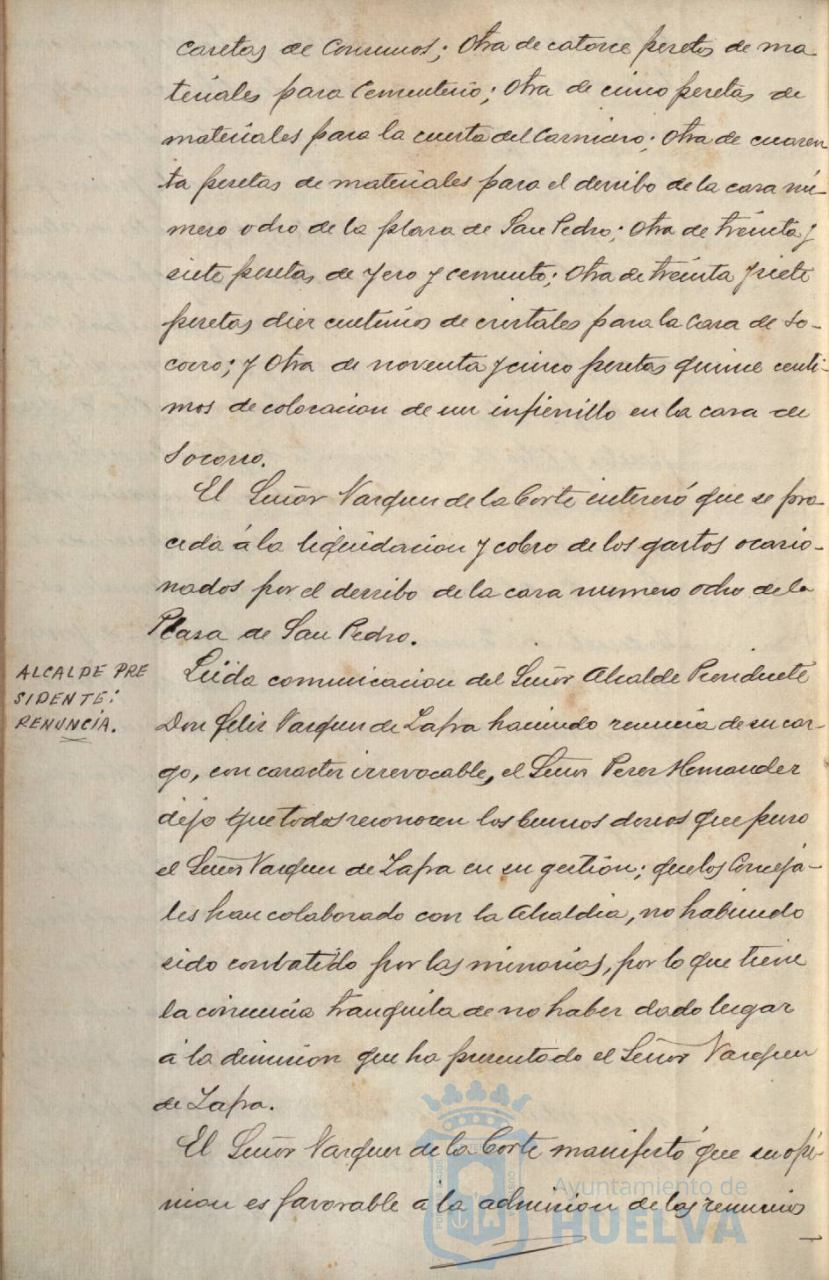 casetas de Consumos; Otra de catorce pesetas de ma
teriales para Cementerio; Otra de cinco pesetas de
materiales para la cuesta del Carnicero; Otra de cuaren
ta pesetas de materiales para el derribo de la casa nú-
mero ocho de la plaza de San Pedro; Otra de treinta y
siete pesetas de yeso y cemento; Otra de treinta y siete
pesetas diez centimos de cristales para la Casa de So-
corro; y Otra de noventa y cinco pesetas quince centi-
mos de colocacion de un infiernillo en la casa de
Socorro.
El Señor Vazquez de la Corte interesó que se pro-
ceda á la liquidacion y cobro de los gastos ocasio-
nados por el derribo de la casa numero ocho de la
Plaza de San Pedro.
ALCALDE PRE
SIDENTE:
RENUNCIA.
Leida comunicacion del Señor Alcalde Presidente
Don Felix Vazquez de Zafra haciendo renuncia de su car-
go, con caracter irrevocable, el Señor Perez Hernandez
dijo que todos reconocen los buenos deseos que puso
el Señor Vazquez de Zafra en su gestión; que los Conceja-
les han colaborado con la Alcaldia, no habiendo
sido combatido por las minorias, por lo que tiene
la conciencia tranquila de no haber dado lugar
á la dimision que ha presentado el Señor Vazquez
de Zafra.
El Señor Vazquez de la Corte manifestó que su opi-
nion es favorable a la admision de las renuncias
Ayuntamiento de
HUELVA